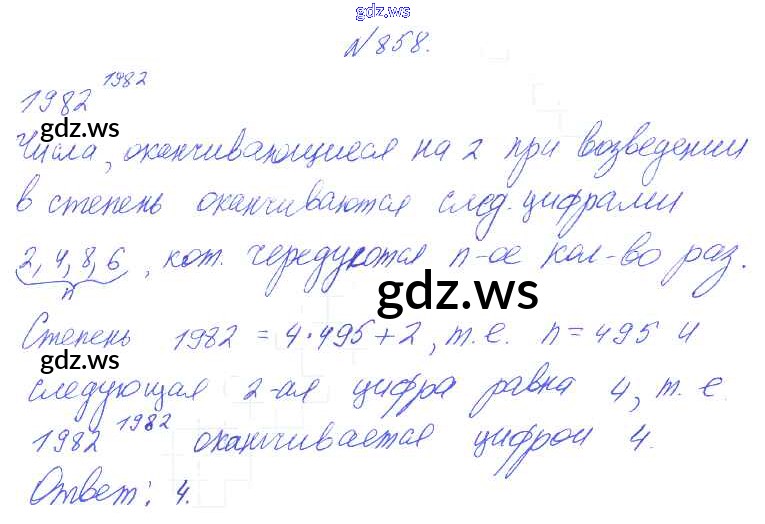 gdz.ws
№858.
1982^1982
gdz.ws
Числа, оканчивающиеся на 2 при возведении
в степень оканчиваются след. цифрами
2, 4, 8, 6, кот. чередуются n-ое кол-во раз.
n
gdz.ws
Степень 1982 = 4·495+2, т.е. n=495 и
gdz.ws
следующая 2-ая цифра равна 4, т.е.
1982^1982 оканчивается цифрой 4.
gdz.ws
Ответ: 4.